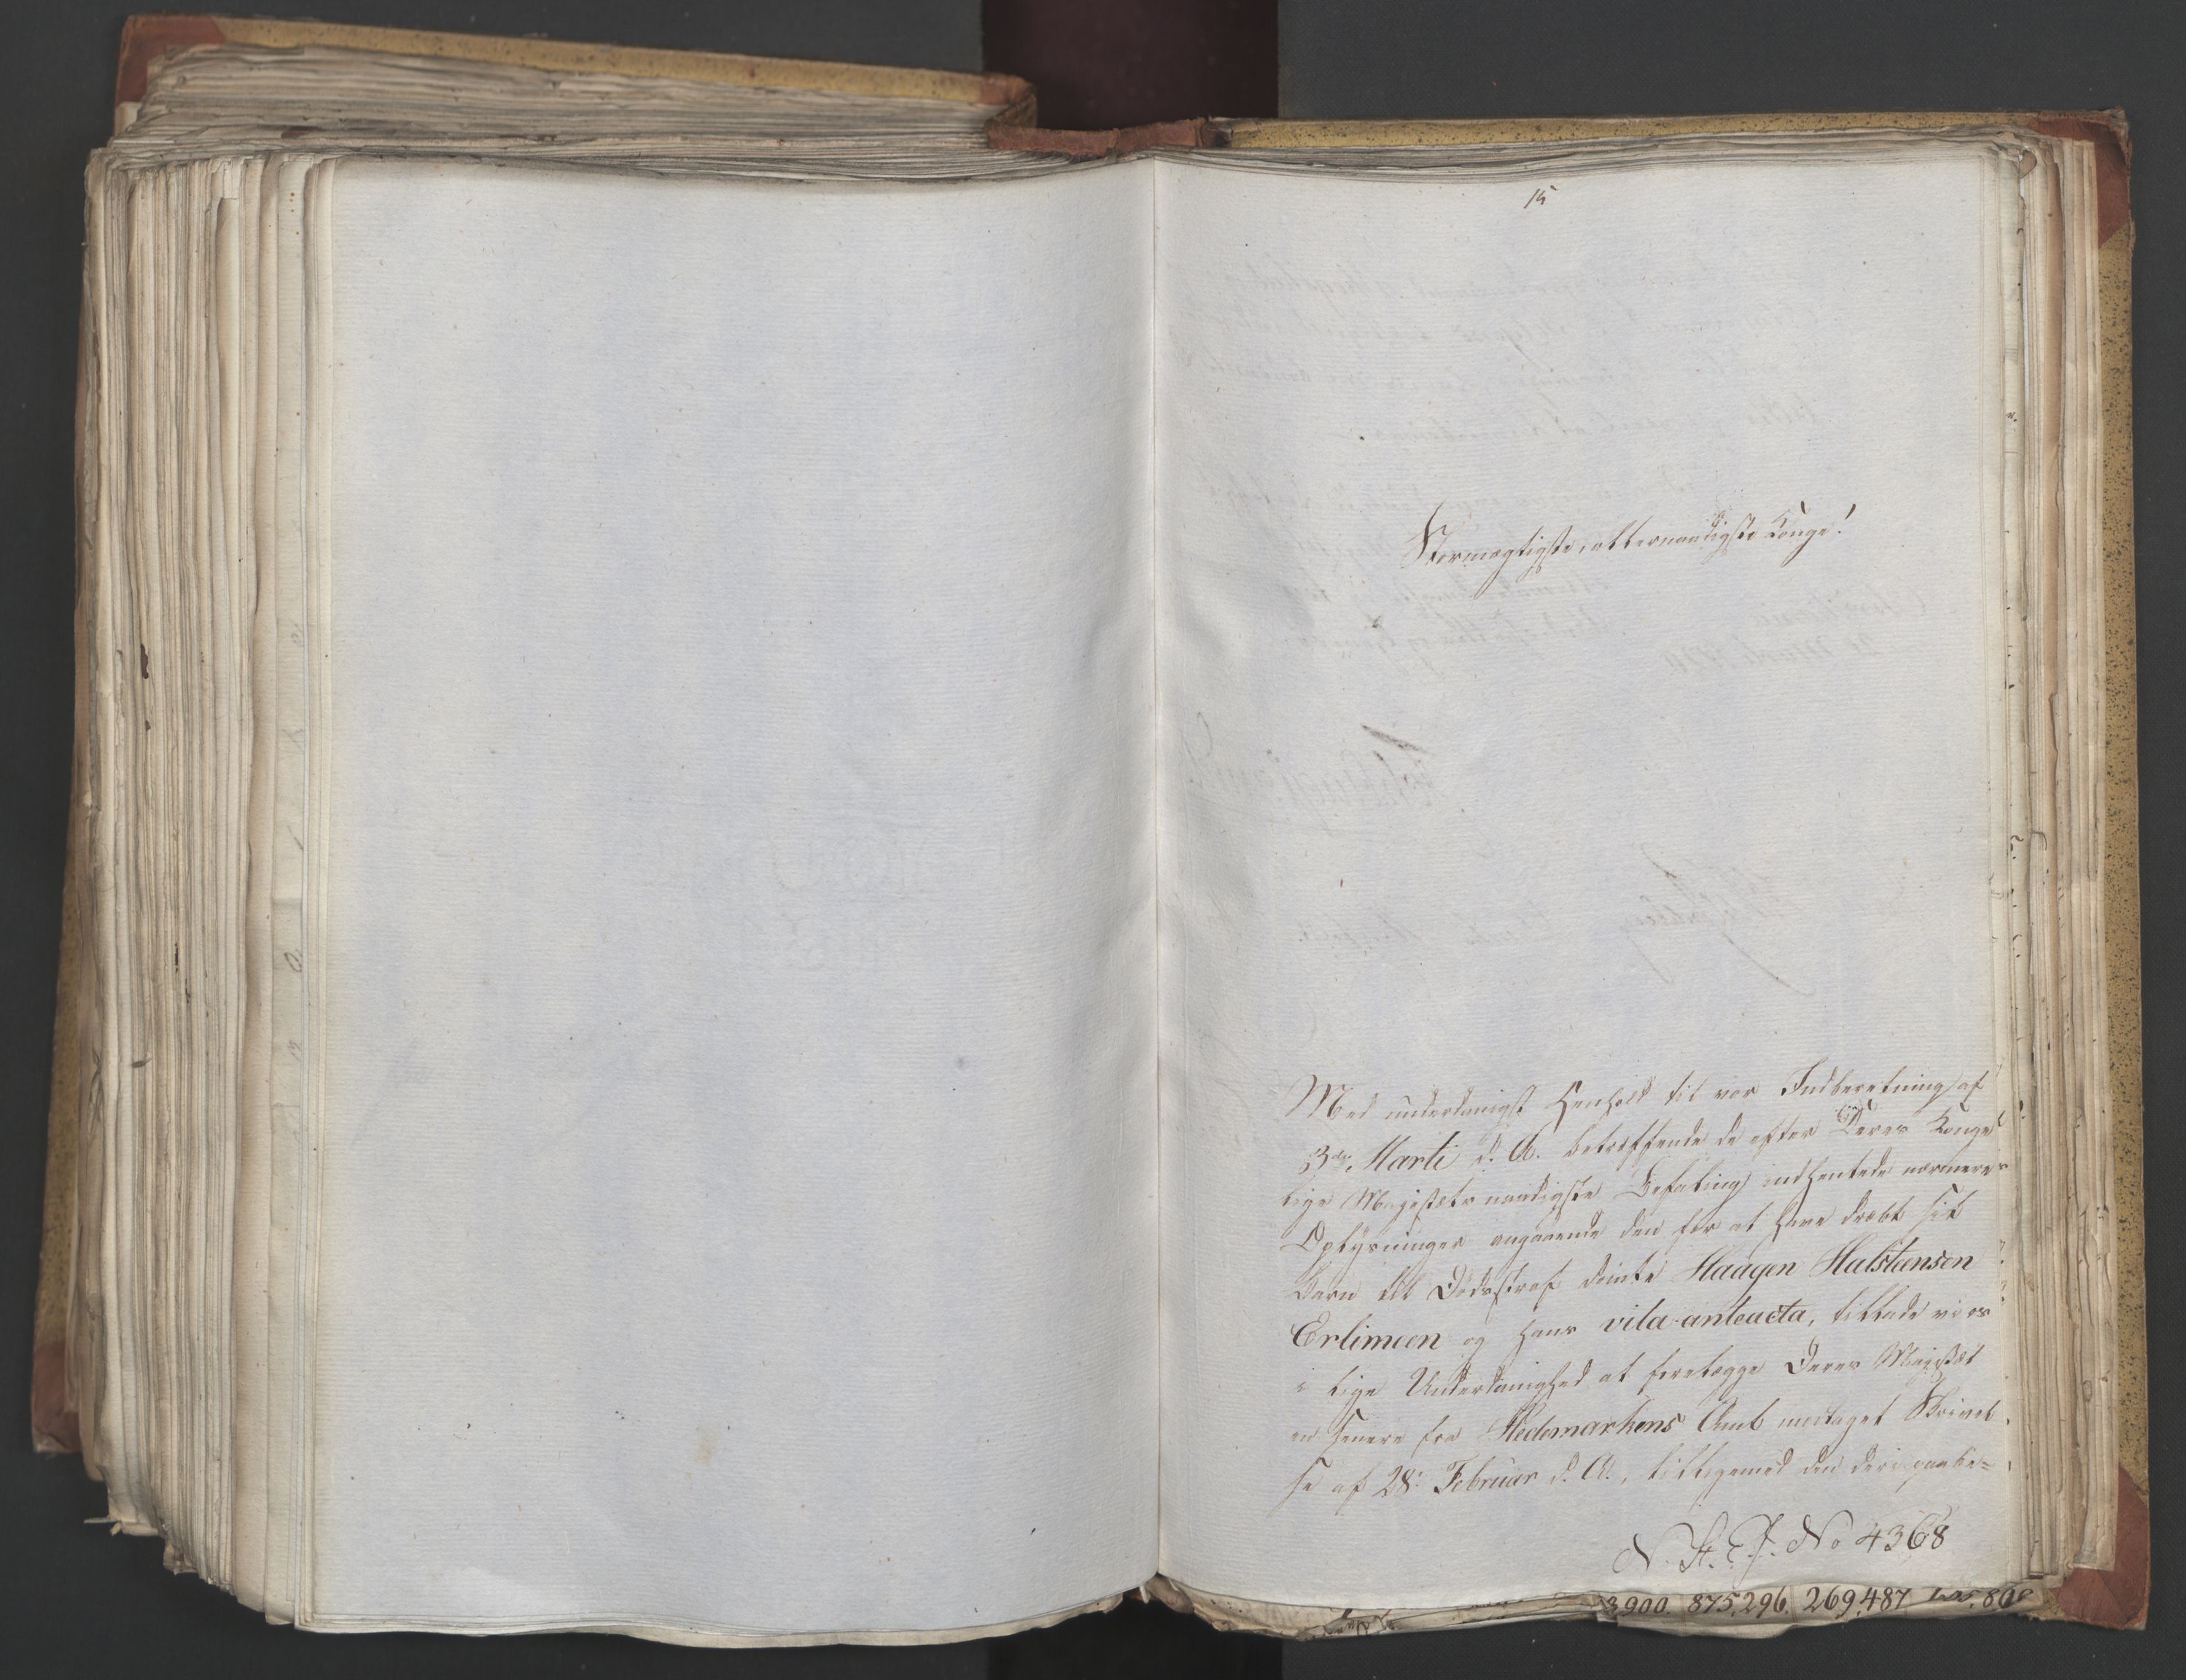 15
Stormægtigste, allernaadigste Konge!
Med underdanigst Henhold til vor Indberetning af
3die Marti d. A. betræffende de efter Deres Konge-
lige Majestæts naadigste Befaling indhentede nærmere
Oplysninger angaaende den for at have dræbt sit
Barn til Dødsstraf dømte Haagen Halstensen
Erlimoen og hans vita anteacta, tillade vi os
i lige Underdanighed at forelægge Deres Majestæt
en senere fra Hedemarkens Amt modtaget Skrivel-
se af 28. Februar d. A., tilligemed den deri paabe-
N. St. E. J. No 4368
3900. 875,296. 269,487